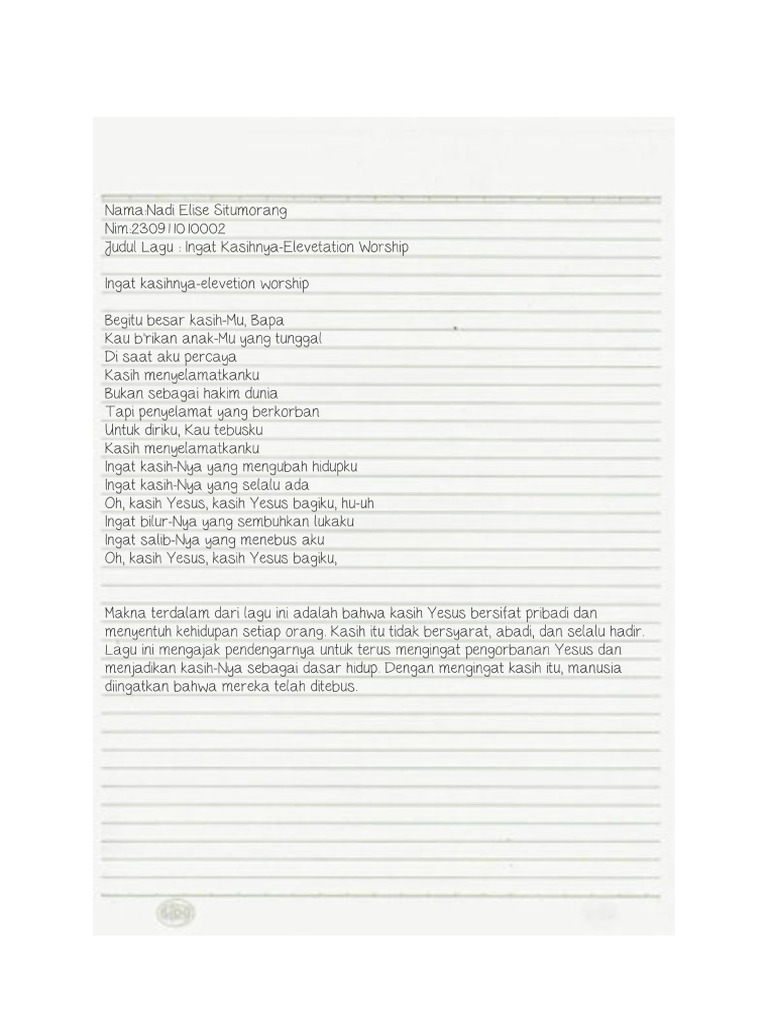 Nama:Nadi Elise Situmorang
Nim:230911010002
Judul Lagu : Ingat Kasihnya-Elevetation Worship
Ingat kasihnya-elevetion worship
Begitu besar kasih-Mu, Bapa
Kau b'rikan anak-Mu yang tunggal
Di saat aku percaya
Kasih menyelamatkanku
Bukan sebagai hakim dunia
Tapi penyelamat yang berkorban
Untuk diriku, Kau tebusku
Kasih menyelamatkanku
Ingat kasih-Nya yang mengubah hidupku
Ingat kasih-Nya yang selalu ada
Oh, kasih Yesus, kasih Yesus bagiku, hu-uh
Ingat bilur-Nya yang sembuhkan lukaku
Ingat salib-Nya yang menebus aku
Oh, kasih Yesus, kasih Yesus bagiku,
Makna terdalam dari lagu ini adalah bahwa kasih Yesus bersifat pribadi dan
menyentuh kehidupan setiap orang. Kasih itu tidak bersyarat, abadi, dan selalu hadir.
Lagu ini mengajak pendengarnya untuk terus mengingat pengorbanan Yesus dan
menjadikan kasih-Nya sebagai dasar hidup. Dengan mengingat kasih itu, manusia
diingatkan bahwa mereka telah ditebus.